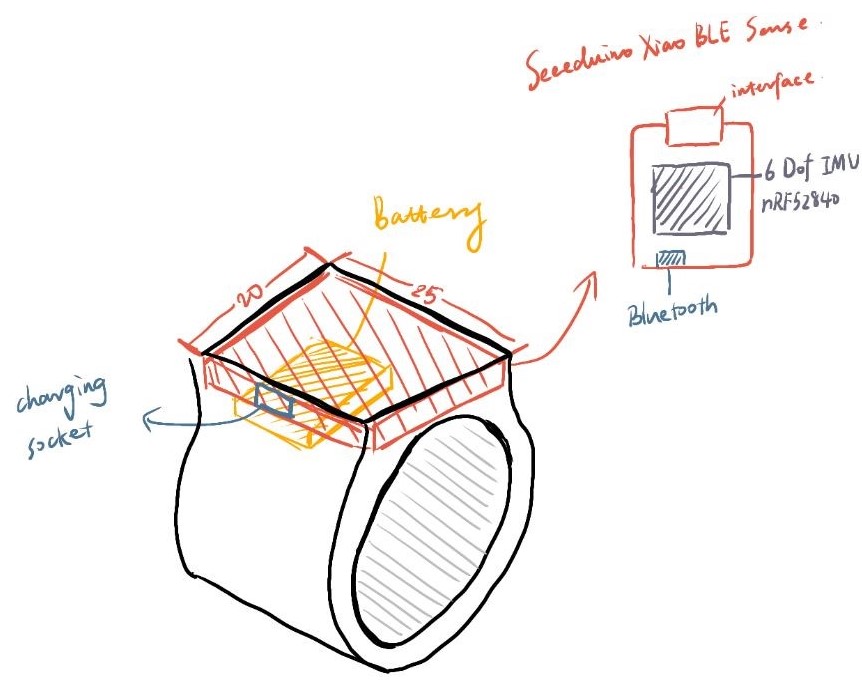 Seeeduino Xiao BLE Sense
interface
6 Dof IMU
nRF52840
Bluetooth
Battery
20
25
charging
socket